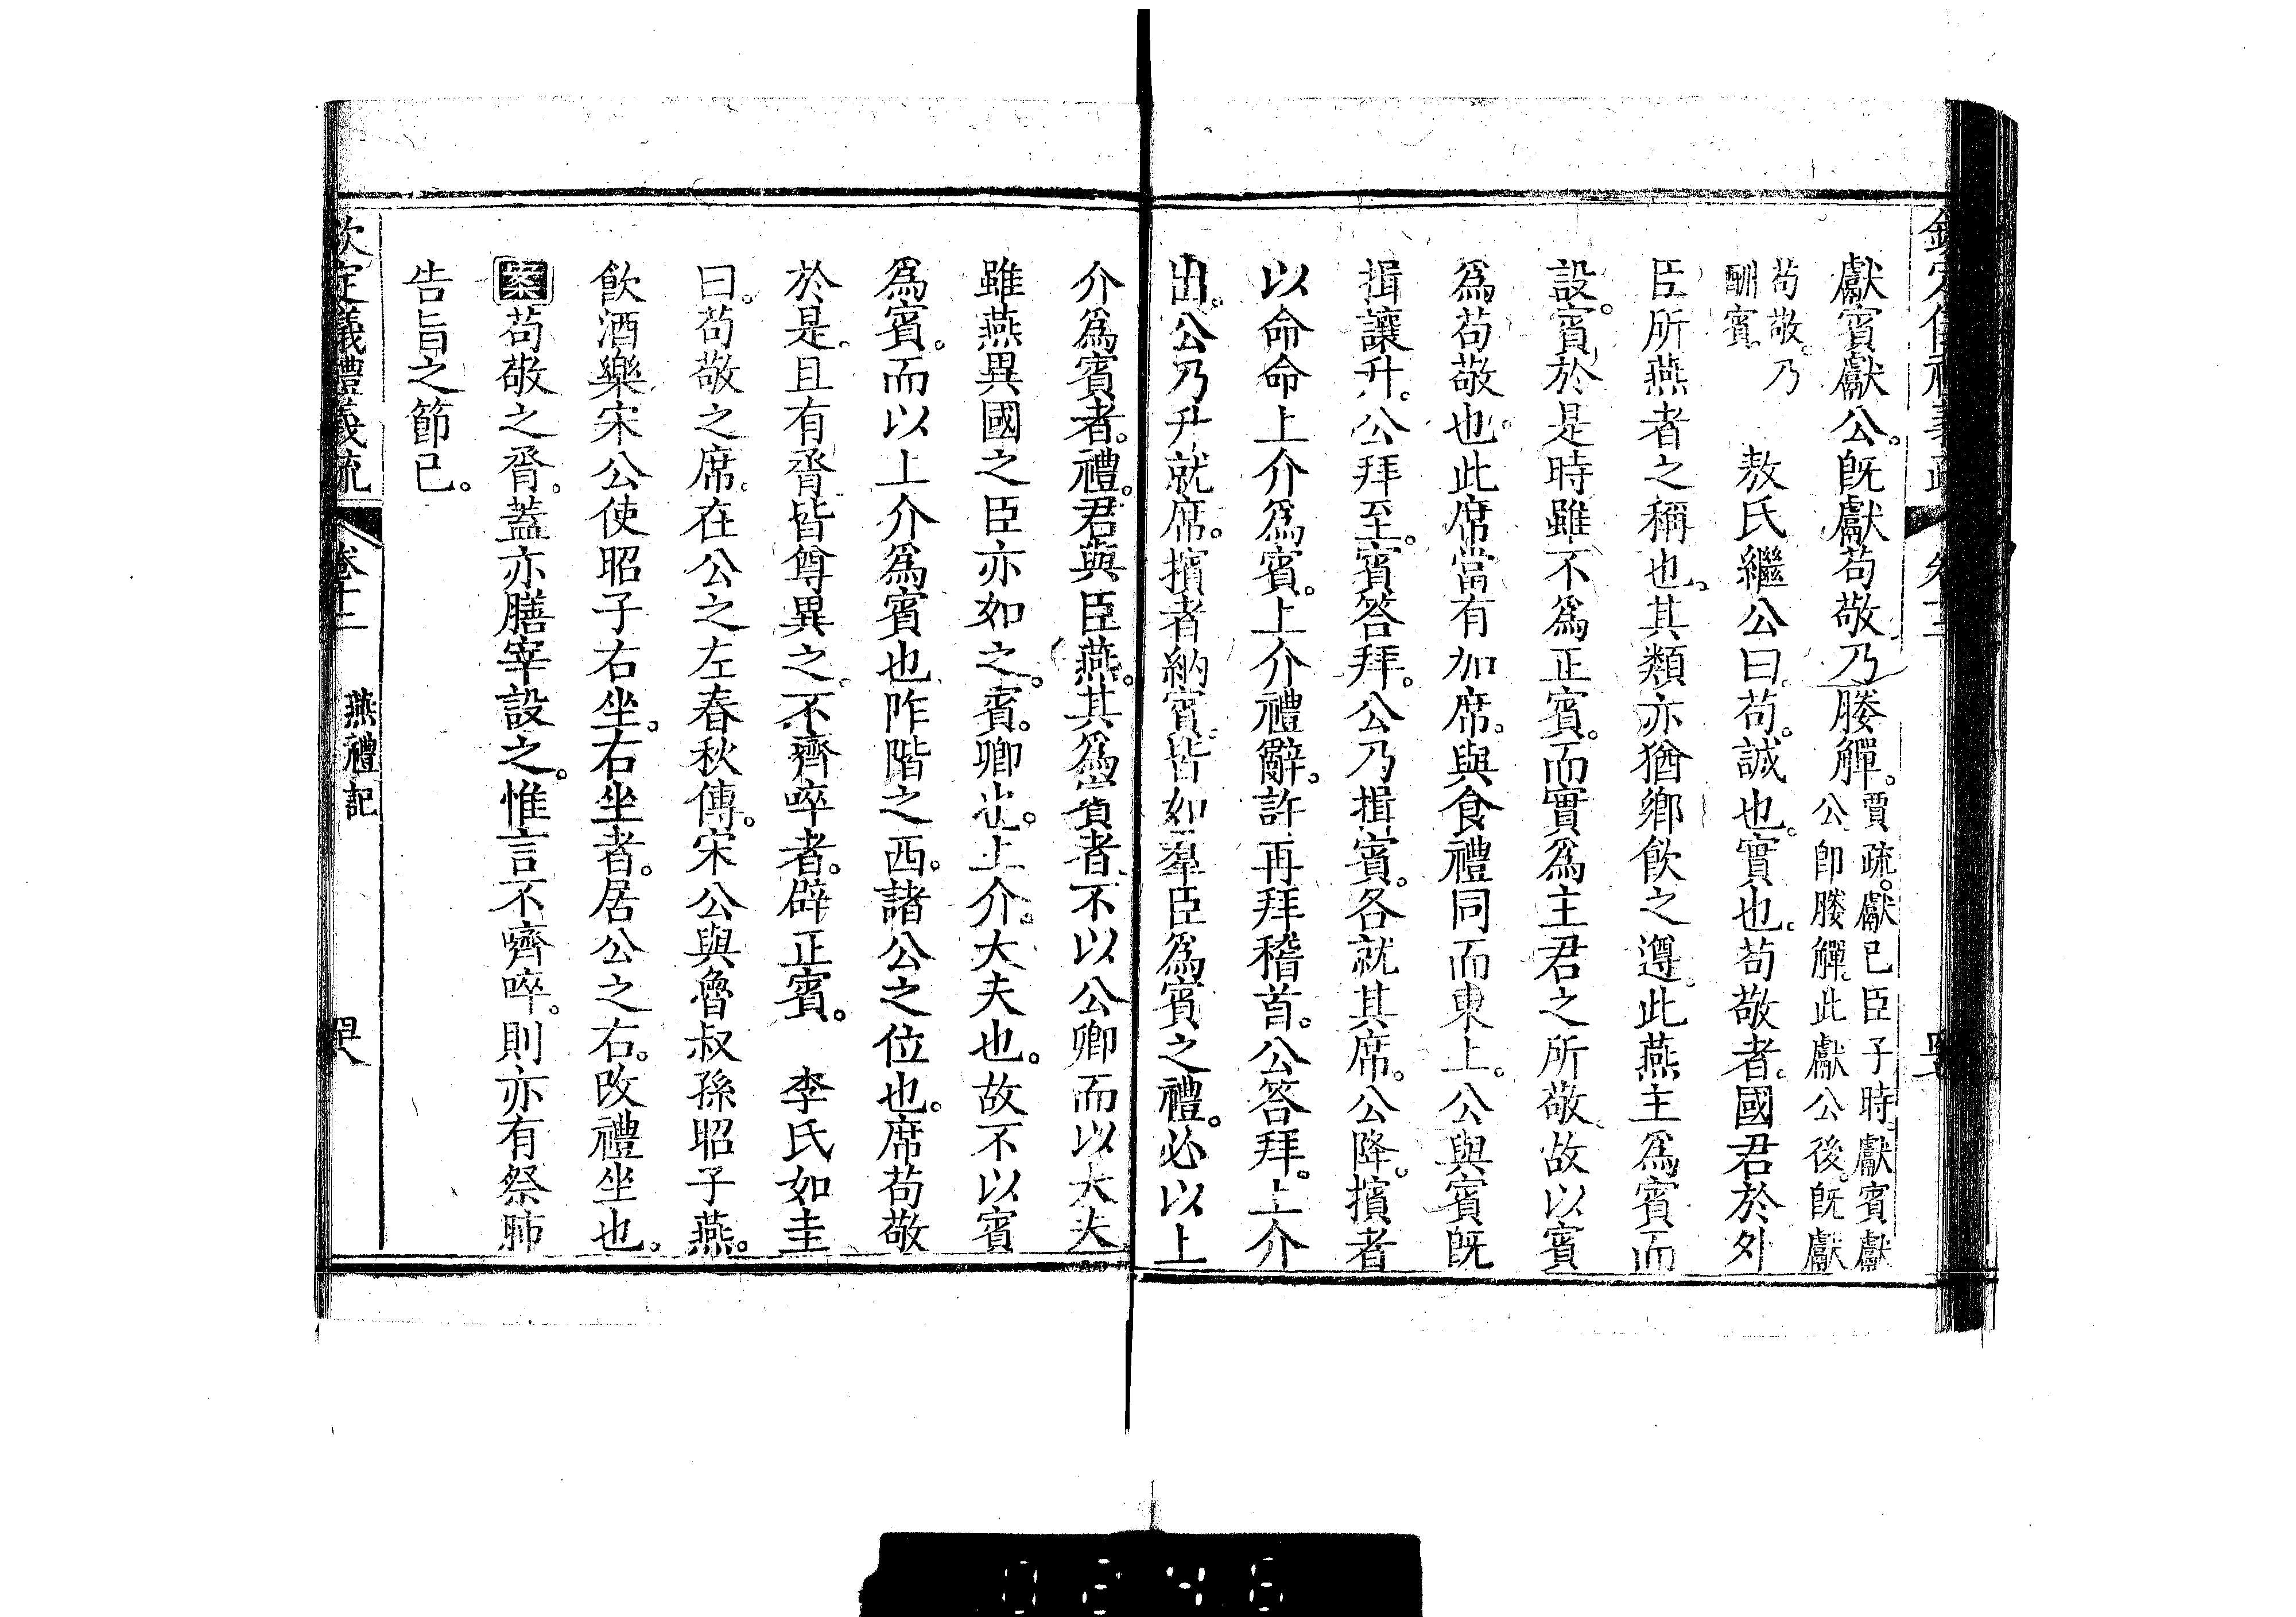 獻賓獻公。既獻苟敬乃媵觶。賈疏。獻已臣子時。獻賓獻
公。即媵觶。此獻公後。既獻
苟敬。乃
酬賓。
敖氏繼公曰。苟。誠也。實也。苟敬者。國君於外
臣所燕者之稱也。其類亦猶鄉飲之遵。此燕主爲賓而
設。賓於是時雖不爲正賓。而實爲主君之所敬。故以賓
爲苟敬也。此席當有加席。與食禮同而東上。公與賓既
揖讓升。公拜至。賓答拜。公乃揖賓。各就其席。公降。擯者
以命命上介爲賓。上介禮辭。許。再拜稽首。公答拜。上介
出。公乃升就席。擯者納賓。皆如羣臣爲賓之禮。必以上
介爲賓者。禮。君與臣燕。其爲賓者。不以公卿而以大夫
雖燕異國之臣亦如之。賓。卿也。上介。大夫也。故不以賓
爲賓。而以上介爲賓也。阼階之西。諸公之位也。席苟敬
於是。且有脀。皆尊異之。不嚌啐者。辟正賓。 李氏如圭
曰。苟敬之席。在公之左。春秋傳。宋公與魯叔孫昭子燕。
飲酒樂。宋公使昭子右坐。右坐者。居公之右。改禮坐也。
案苟敬之脀。蓋亦膳宰設之。惟言不嚌啐。則亦有祭肺
告旨之節已。
欽定儀禮義疏 卷十二 燕禮記 四八